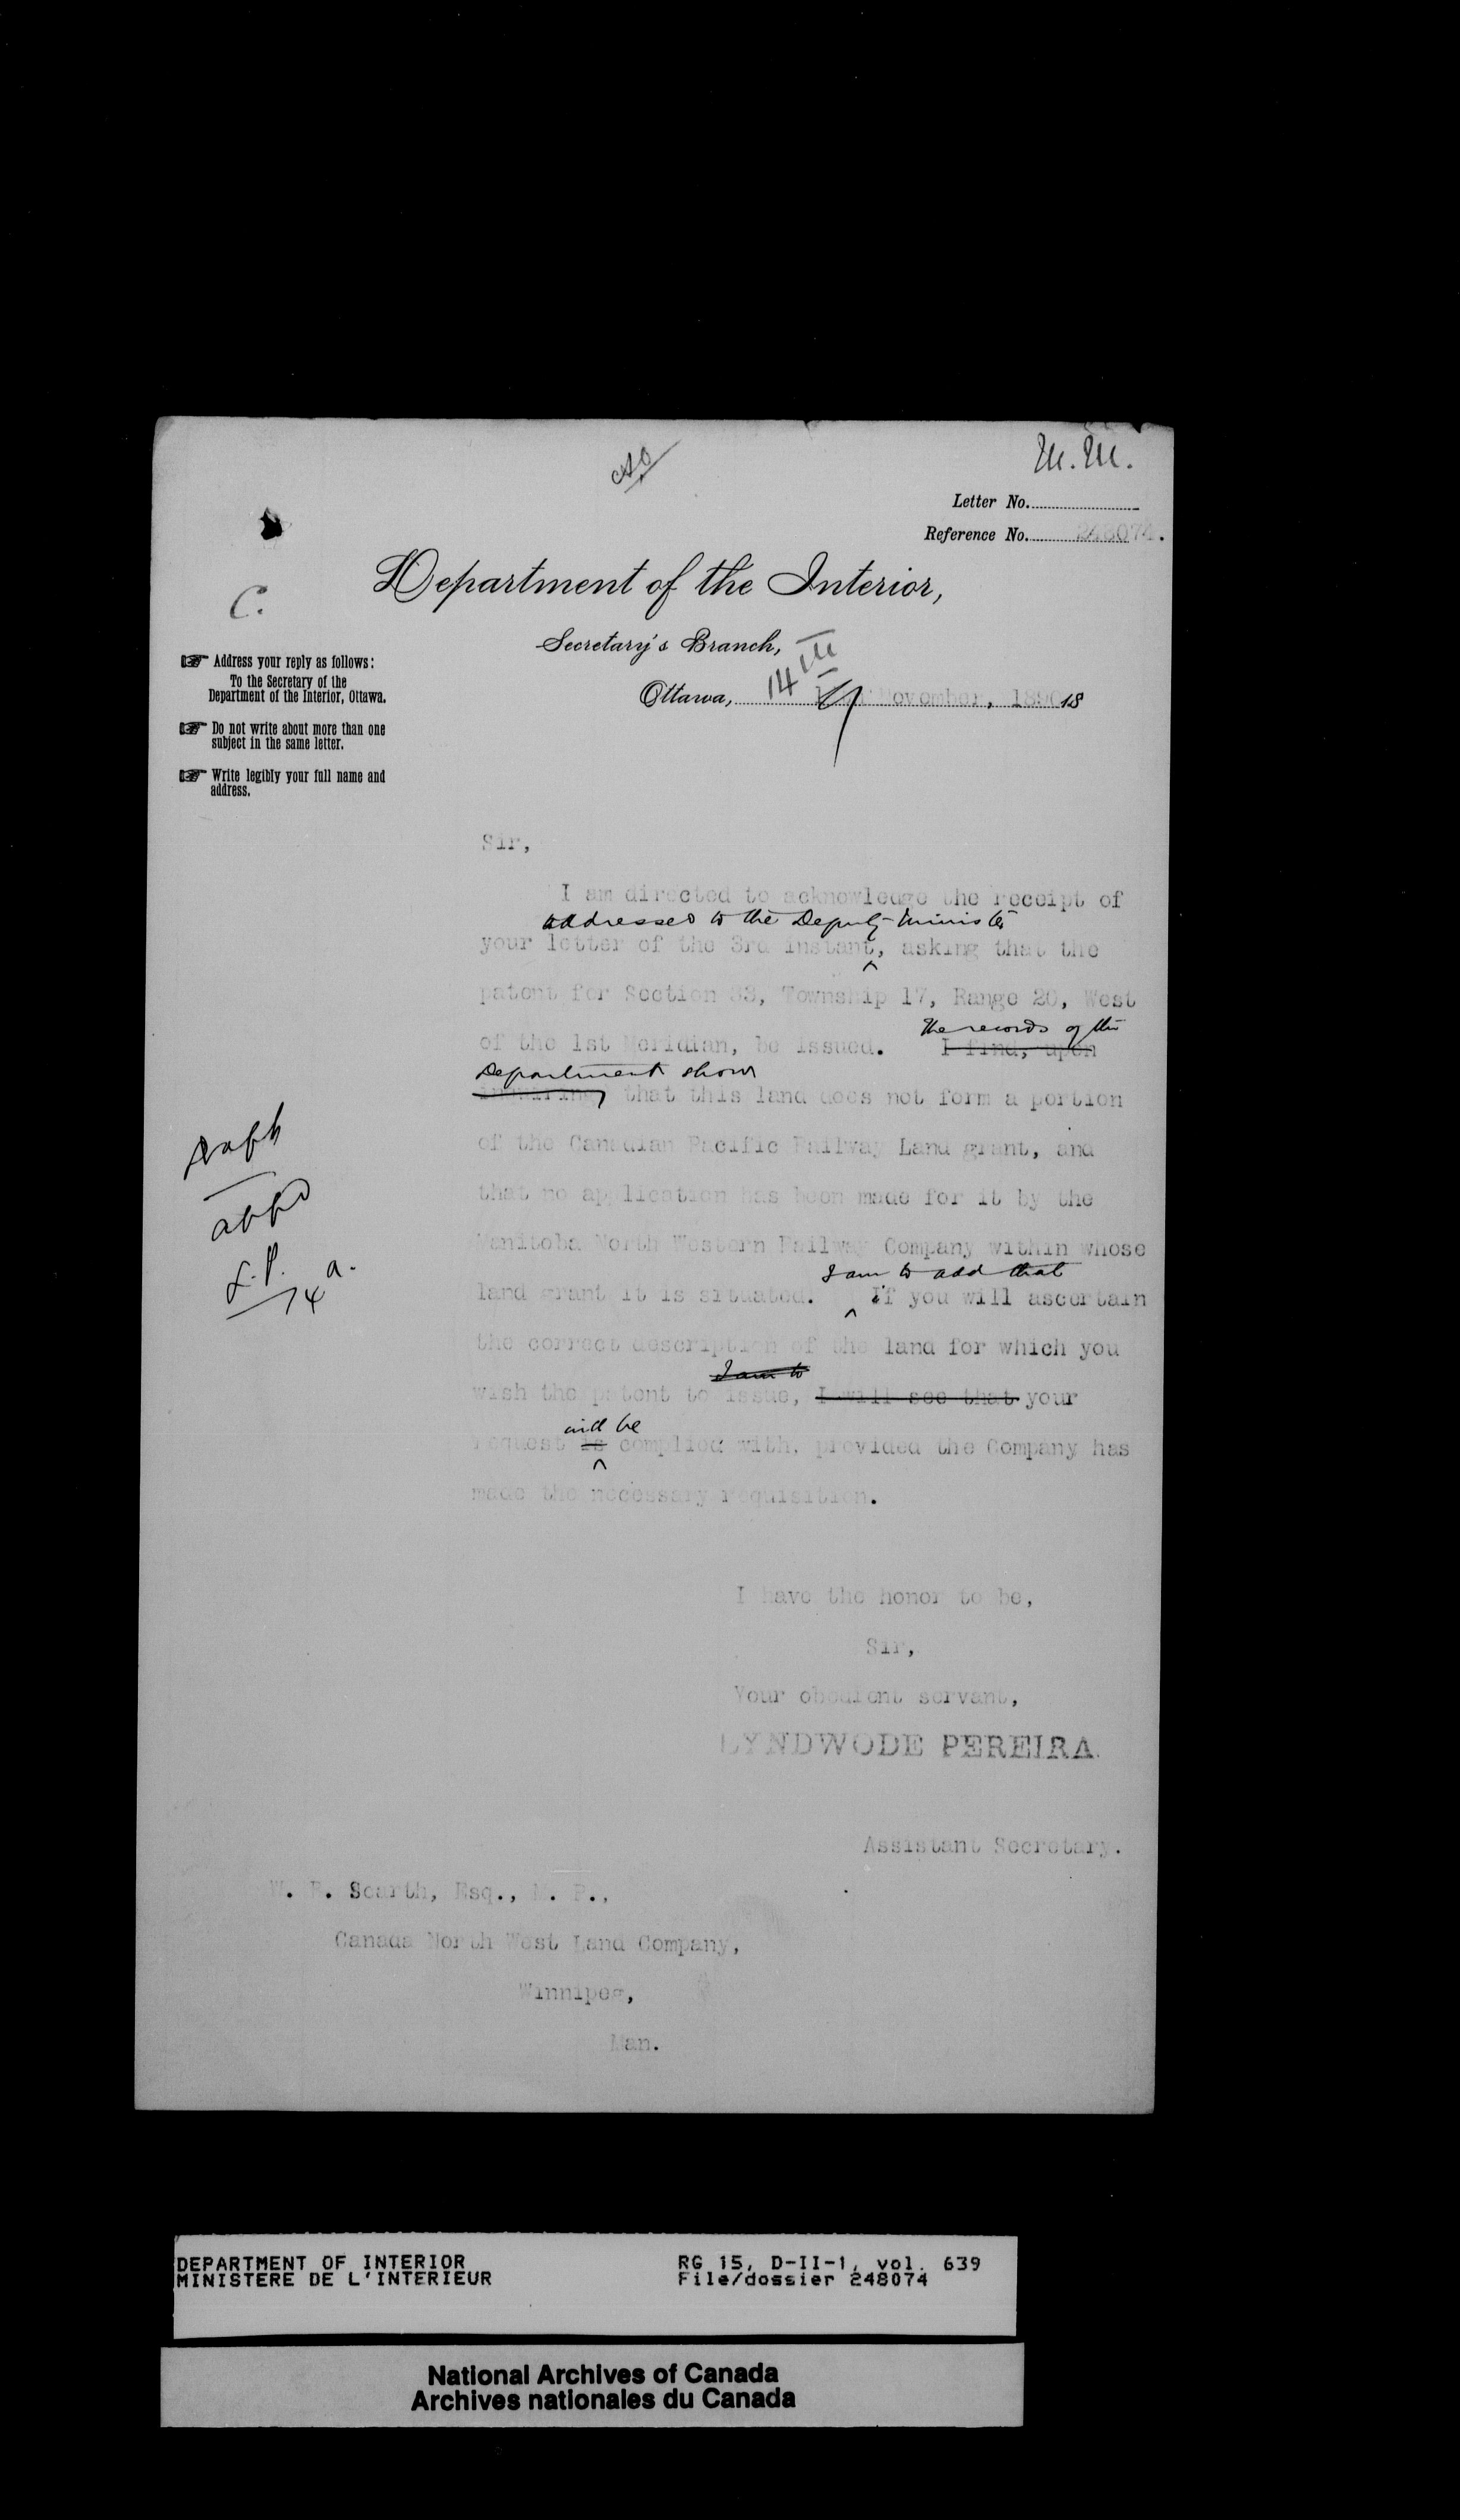 M.M.
Letter No.
Reference No. 248074.
Department of the Interior,
C.
Secretary's Branch,
Ottawa, 14th November, 1890 18
Address your reply as follows:
To the Secretary of the
Department of the Interior, Ottawa.
Do not write about more than one
subject in the same letter.
Write legibly your full name and
address.
Sir,
I am directed to acknowledge the receipt of
addressed to the Deputy Minister
your letter of the 3rd instant, asking that the
patent for Section 33, Township 17, Range 20, West
The records of the
of the 1st Meridian, be issued. I find, upon
Department show
inquiring, that this land does not form a portion
of the Canadian Pacific Railway Land grant, and
that no application has been made for it by the
Manitoba North Western Railway Company within whose
I am to add that
land grant it is situated. If you will ascertain
the correct description of the land for which you
I am to
wish the patent to issue, I will see that your
will be
request is complied with, provided the Company has
made the necessary requisition.
I have the honor to be,
Sir,
Your obedient servant,
LYNDWODE PEREIRA.
Assistant Secretary.
W. B. Scarth, Esq., M. P.,
Canada North West Land Company,
Winnipeg,
Man.
DEPARTMENT OF INTERIOR
MINISTERE DE L'INTERIEUR
RG 15, D-II-1, vol. 639
File/dossier 248074
National Archives of Canada
Archives nationales du Canada